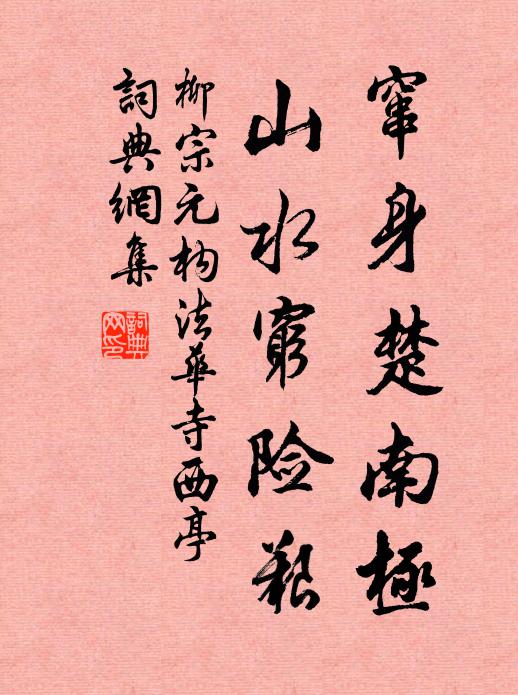 窜身楚南極
山水窮险艱
柳宗元构法華寺西亭
詞典網集
詞典
网印